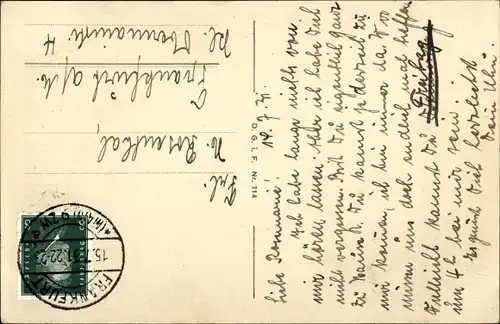 14. 7. 31.
Liebe Rosemarie!
Ich habe lange nichts von
mir hören lassen. Aber ich habe Dich
nicht vergessen. Bist Du eigentlich ganz
zu Hause? Du kannst jederzeit zu
mir kommen, ich bin immer da. Wo
müssen uns doch endlich mal treffen
Vielleicht kannst Du Freitag
um 4 h bei mir sein.
Es grüßt Dich herzlichst
Dein Uhu
Frl.
N. Rosenthal,
Frankfurt a/M.
kl. Bornheimstr. 4
D. G. i. F. Nr. 114
FRANKFURT (MAIN)
15.7.31.22-23